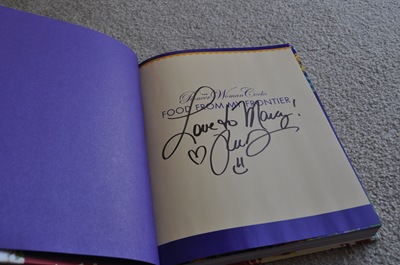 THE
Pioneer Woman Cooks
FOOD FROM MY FRONTIER
Love to Marcy!
Ree